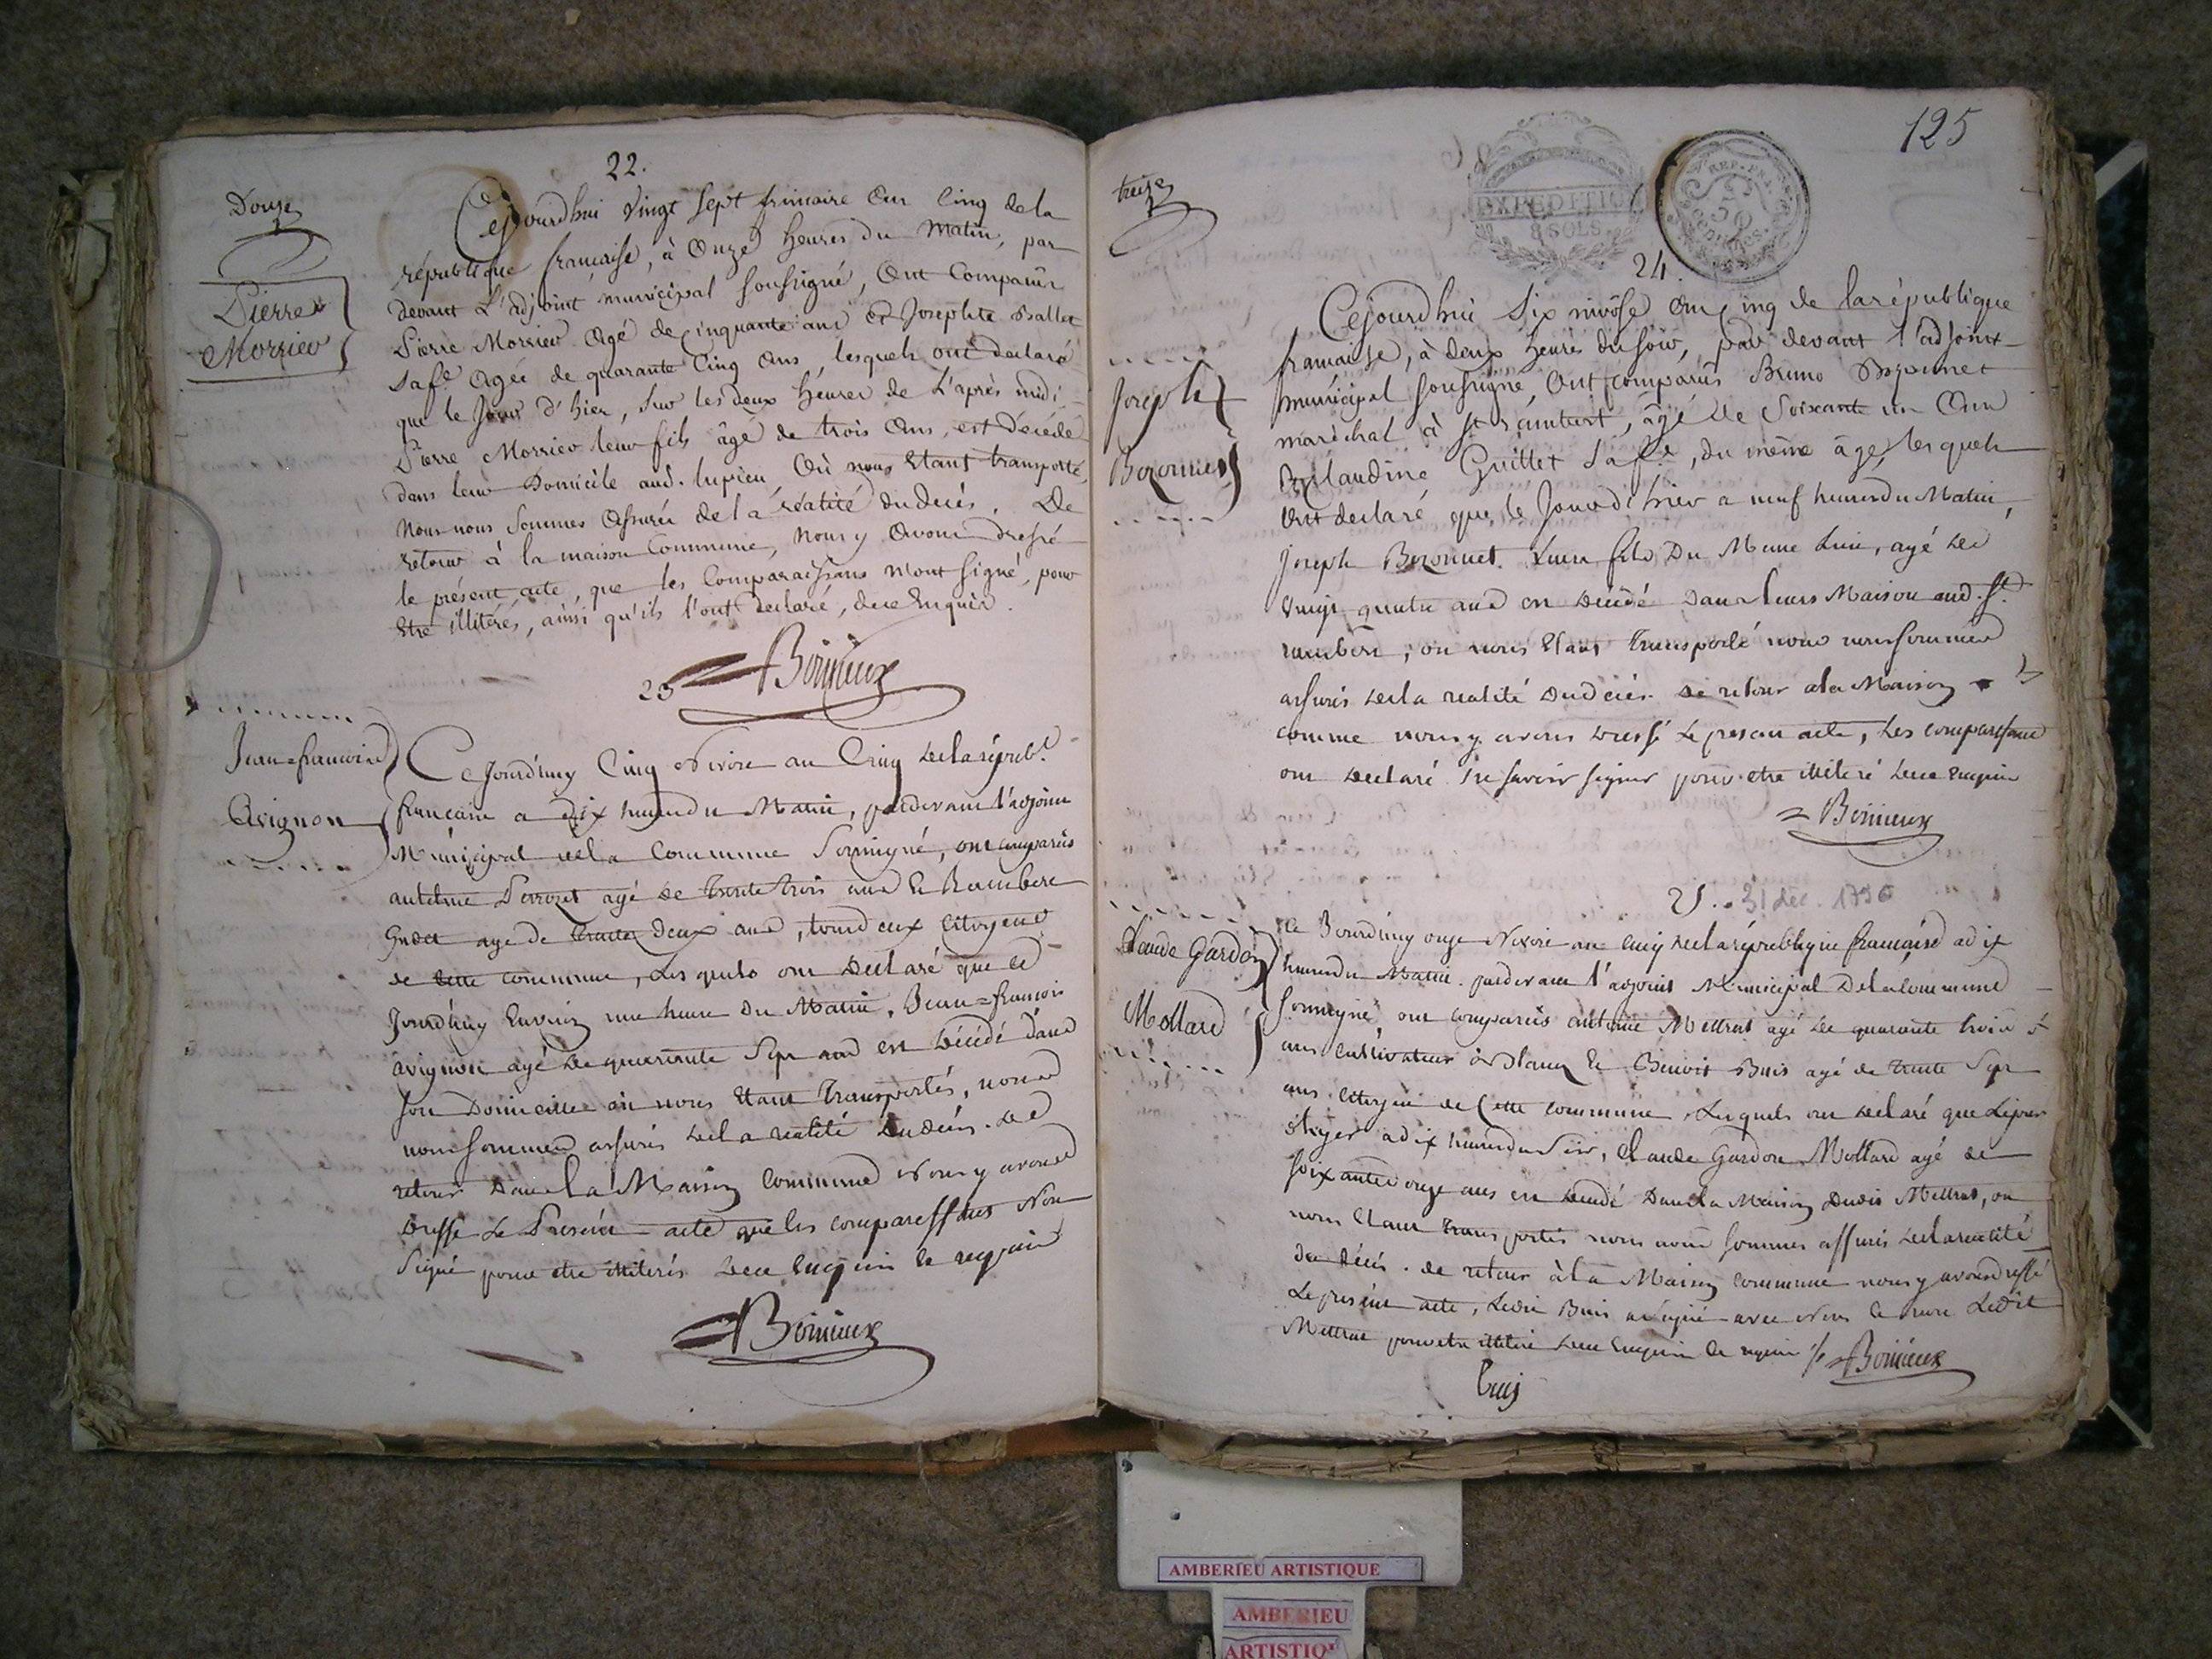 Douze
22.
Pierre
Morrier
Cejourdhui Vingt sept frimaire an Cinq de la
république française, à Onze heures du matin, par
devant L'adjoint municipal soussigné, Ont Comparu
Pierre Morrier agé de Cinquante ans et Josephte Ballet
sa fe agée de quarante Cinq ans, lesquels ont declaré
que le Jour d'hier, sur les deux heures de L'après midi
Pierre Morrier leur fils âgé de trois ans, est décédé
dans leur Domicile aud. lupieu, Où nous Etant transporté,
Nous nous sommes assurés de la réalité du decès. De
retour à la maison Commune, nous y avons dressé
le présent acte, que les Comparaissans n'ont signé, pour
Etre illitérés, ainsi qu'ils l'ont declaré, de ce Enquis.
Boinieux
23
Jean=francois
Avignon
Ce Jourdhuy Cinq Nivose an Cinq de la républ.
francaise a dix heures du Matin, pardevant l'adjoint
Municipal de la Commune Soussigné, ont comparus
antelme Perrozet agé de trente trois ans et Rambert
agé de trente deux ans, tous deux Citoyens
de Cette commune, Lesquels ont declaré que ce
Jourdhuy Environ une heure du Matin, Jean=francois
avignon agé de quarante Sept ans est décédé dans
son Domicille où nous Etant Transportés, nous
nous sommes assurés de la réalité du décès. de
retour dans la Maison Commune Nous y avons
dressé Le Présent acte que les comparessants Non
Signé pour etre illiterés de ce Enquis et requis
Boinieux
treize
125
EXPEDITION
8 SOLS
REP. FRA.
50
CENTIMES
24.
Joseph
Bozonnet
Cejourdhui six nivôse an Cinq de la république
française, à deux heures du soir, par devant l'adjoint
municipal soussigné, Ont comparus Bruno Bozonnet
maréchal à St rambert, âgé de soixante un ans
et Claudine Guillet sa fe, du même âge, lesquels
Ont declaré que le Jour d'hier a neuf heures du Matin,
Joseph Bozonnet Leur fils, Du Meme Lieu, agé de
Vingt quatre ans est décédé Dans leurs Maison aud. St.
rambert, ou nous Etant Transporté nous nous sommes
assurés de la realité du décès. de retour a la Maison
comme nous y avons dressé Le present acte, Les comparessant
ont declaré ne savoir signer pour etre illiteré de ce enquis
Boinieux
25. 31 déc. 1796
Claude Gardon
Mollard
Ce Jourdhuy onze Nivose an cinq de la république francaise a dix
heures du Matin. pardevant l'adjoint Municipal De la commune
Soussigné, ont comparus antoine Mettrat agé de quarante trois
ans cultivateur à Blanaz Et Benoit Buis agé de trente Sept
ans Citoyen de Cette commune Lesquels ont declaré que Le jour
d'hyer a dix heures du Soir, Claude Gardon Mollard agé de
soixante onze ans est decedé Dans la Maison Dudit Mettrat, ou
nous Etant transportés nous nous sommes assurés de la realité
du décès. de retour à la Maison commune nous y avons dressé
Le present acte, Ledit Buis a signé avec Nous et non Ledit
Mettrat pour etre illiteré de ce enquis et requis
Boinieux
Buis
AMBERIEU ARTISTIQUE
AMBERIEU
ARTISTIQ